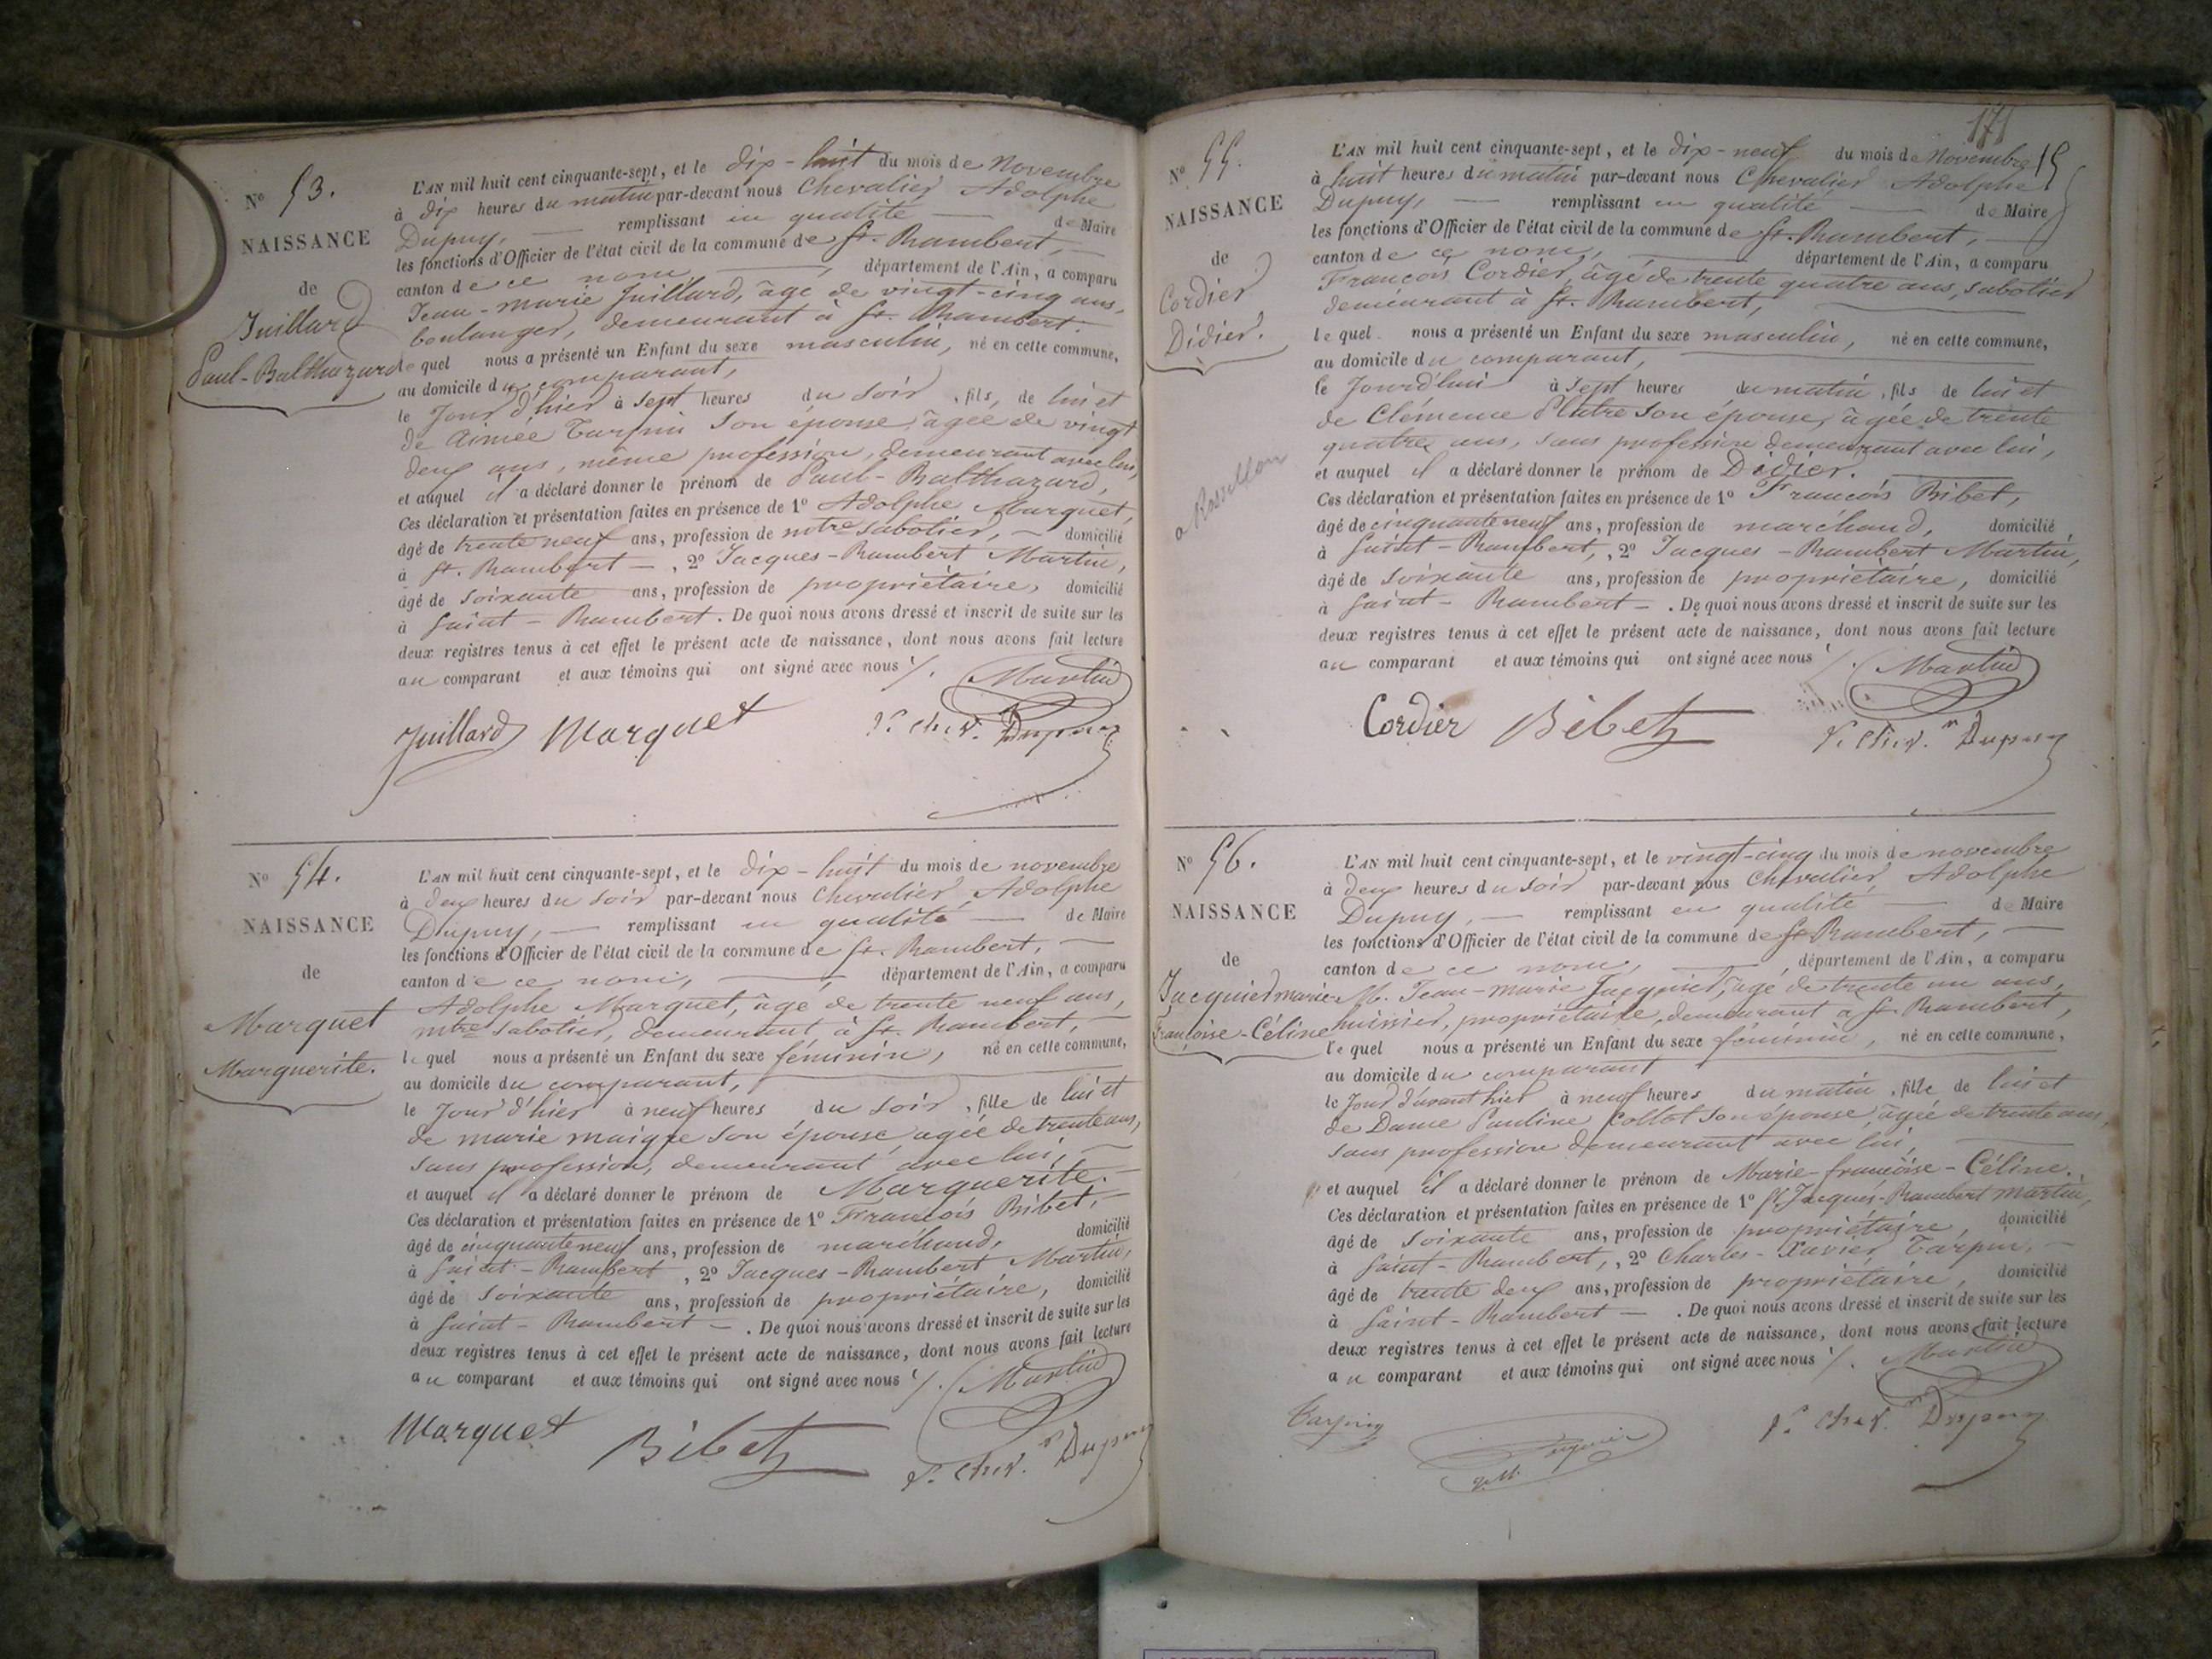 N° 53.
NAISSANCE
de
Juillard
Paul-Balthazard
L'AN mil huit cent cinquante-sept, et le dix-huit du mois de Novembre
à dix heures du matin par-devant nous Chevalier Adolphe
Dupuy, — remplissant en qualité — de Maire
les fonctions d'Officier de l'état civil de la commune de St. Rambert, —
canton de ce nom, —, département de l'Ain, a comparu
Jean-Marie Juillard, âgé de vingt-cinq ans,
boulanger, demeurant à St. Rambert.
lequel nous a présenté un Enfant du sexe masculin, né en cette commune,
au domicile du comparant,
le Jour d'hier à sept heures du soir, fils, de lui et
de Aimée Tarpin son épouse, âgée de vingt
deux ans, même profession, demeurant avec lui,
et auquel il a déclaré donner le prénom de Paul-Balthazard,
Ces déclaration et présentation faites en présence de 1° Adolphe Marquet,
âgé de trente neuf ans, profession de mtre sabotier, — domicilié
à St. Rambert —, 2° Jacques-Rambert Martin,
âgé de soixante ans, profession de propriétaire, domicilié
à Saint-Rambert. De quoi nous avons dressé et inscrit de suite sur les
deux registres tenus à cet effet le présent acte de naissance, dont nous avons fait lecture
au comparant et aux témoins qui ont signé avec nous ./. Martin
Juillard Marquet Dupuy
N° 54.
NAISSANCE
de
Marquet
Marguerite.
L'AN mil huit cent cinquante-sept, et le dix-huit du mois de novembre
à deux heures du soir par-devant nous Chevalier Adolphe
Dupuy, — remplissant en qualité — de Maire
les fonctions d'Officier de l'état civil de la commune de St. Rambert, —
canton de ce nom, —, département de l'Ain, a comparu
Adolphe Marquet, âgé de trente neuf ans,
mtre sabotier, demeurant à St. Rambert, —
lequel nous a présenté un Enfant du sexe féminin, né en cette commune,
au domicile du comparant,
le Jour d'hier à neuf heures du soir, fille de lui et
de marie maigre son épouse âgée de trente ans,
sans profession, demeurant avec lui, —
et auquel il a déclaré donner le prénom de Marguerite. —
Ces déclaration et présentation faites en présence de 1° François Bibet, —
âgé de cinquante neuf ans, profession de marchand, domicilié
à Saint-Rambert, 2° Jacques-Rambert Martin,
âgé de soixante ans, profession de propriétaire, domicilié
à Saint-Rambert —. De quoi nous avons dressé et inscrit de suite sur les
deux registres tenus à cet effet le présent acte de naissance, dont nous avons fait lecture
au comparant et aux témoins qui ont signé avec nous ./. Martin
Marquet Bibet Dupuy
171
N° 55.
NAISSANCE
de
Cordier
Didier.
L'AN mil huit cent cinquante-sept, et le dix-neuf du mois de Novembre
à huit heures du matin par-devant nous Chevalier Adolphe
Dupuy, — remplissant en qualité — de Maire
les fonctions d'Officier de l'état civil de la commune de St. Rambert, —
canton de ce nom, — département de l'Ain, a comparu
François Cordier, âgé de trente quatre ans, sabotier
demeurant à St. Rambert, —
lequel nous a présenté un Enfant du sexe masculin, né en cette commune,
au domicile du comparant, —
le Jourd'hui à sept heures du matin, fils de lui et
de Clémence son épouse, âgée de trente
quatre ans, sans profession demeurant avec lui,
et auquel il a déclaré donner le prénom de Didier. —
Ces déclaration et présentation faites en présence de 1° François Bibet,
âgé de cinquante neuf ans, profession de marchand, domicilié
à Saint-Rambert, 2° Jacques-Rambert Martin,
âgé de soixante ans, profession de propriétaire, domicilié
à Saint-Rambert —. De quoi nous avons dressé et inscrit de suite sur les
deux registres tenus à cet effet le présent acte de naissance, dont nous avons fait lecture
au comparant et aux témoins qui ont signé avec nous ./. Martin
Cordier Bibet Dupuy
N° 56.
NAISSANCE
de
Jacquier marie-
Françoise-Céline
L'AN mil huit cent cinquante-sept, et le vingt-cinq du mois de novembre
à deux heures du soir par-devant nous Chevalier Adolphe
Dupuy, — remplissant en qualité — de Maire
les fonctions d'Officier de l'état civil de la commune de St Rambert, —
canton de ce nom, — département de l'Ain, a comparu
M. Jean-marie Jacquier, âgé de trente un ans,
huissier, propriétaire, demeurant à St. Rambert,
lequel nous a présenté un Enfant du sexe féminin, né en cette commune,
au domicile du comparant
le Jour d'avant hier à neuf heures du matin, fille de lui et
de Dame Pauline Collot son épouse, âgée de trente ans,
sans profession demeurant avec lui, —
et auquel il a déclaré donner le prénom de Marie-françoise-Céline.
Ces déclaration et présentation faites en présence de 1° Jacques-Rambert Martin,
âgé de soixante ans, profession de propriétaire, domicilié
à Saint-Rambert, 2° Charles-Xavier Tarpin, —
âgé de trente deux ans, profession de propriétaire, domicilié
à Saint-Rambert —. De quoi nous avons dressé et inscrit de suite sur les
deux registres tenus à cet effet le présent acte de naissance, dont nous avons fait lecture
au comparant et aux témoins qui ont signé avec nous ./. Martin
Tarpin Jacquier Dupuy